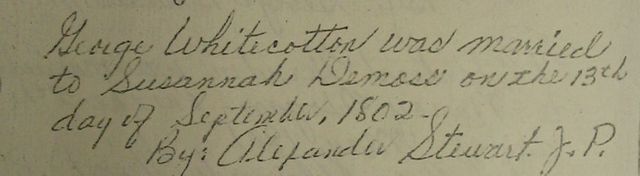 George Whitecotton was married
to Susannah Demoss on the 13th
day of September, 1802-
By: Alexander Stewart. J. P.